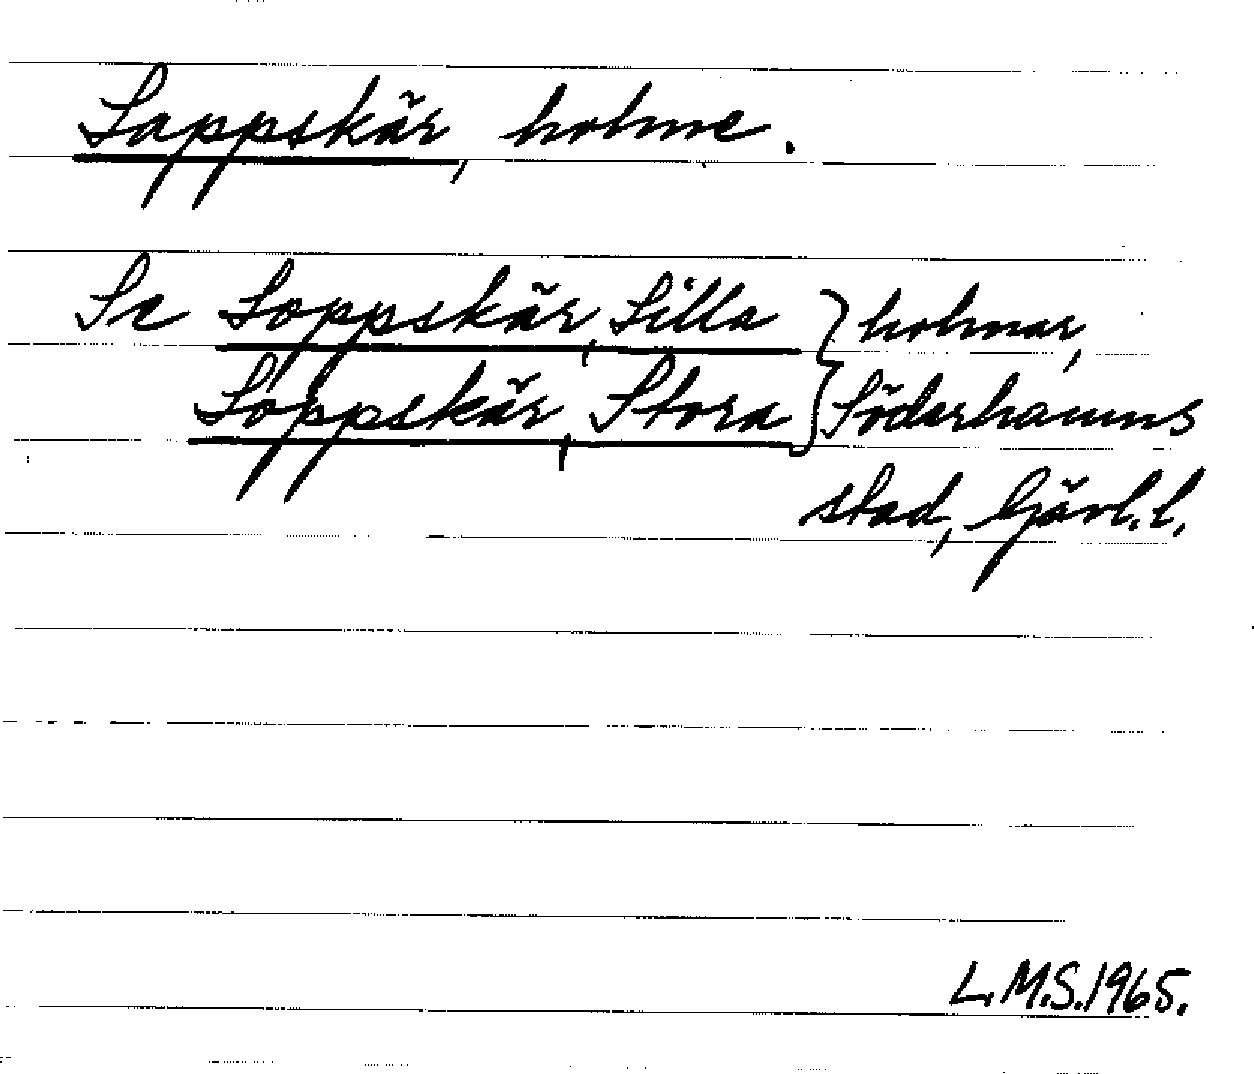 Lappskär, holme.
Se Loppskär, Lilla } holmar,
Loppskär, Stora } Söderhamns
stad, Gävl.l.
L.M.S.1965.